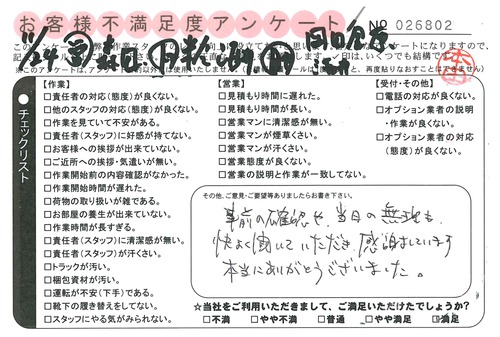 お客様不満足度アンケート
No 026802
チェックリスト
【作業】
□責任者の対応(態度)が良くない。
□他のスタッフの対応(態度)が良くない。
□作業を見ていて不安がある。
□責任者(スタッフ)に好感が持てない。
□お客様への挨拶が出来ていない。
□ご近所への挨拶・気遣いが無い。
□作業開始前の内容確認がなかった。
□作業開始時間が遅れた。
□荷物の取り扱いが雑である。
□お部屋の養生が出来ていない。
□作業時間が長すぎる。
□責任者(スタッフ)に清潔感が無い。
□責任者(スタッフ)が汗くさい。
□トラックが汚い。
□梱包資材が汚い。
□運転が不安(下手)である。
□靴下の履き替えをしてない。
□スタッフにやる気がみられない。
【営業】
□見積もり時間に遅れた。
□見積もり時間が長い。
□営業マンに清潔感が無い。
□営業マンが煙草くさい。
□営業マンが汗くさい。
□営業態度が良くない。
□営業の説明と作業が一致してない。
【受付・その他】
□電話の対応が良くない。
□オプション業者の説明
・作業が良くない。
□オプション業者の対応
(態度)が良くない。
その他、ご意見・ご要望等ありましたらお書き下さい。
事前の確認や、当日の無理も
快よく聞いていただき、感謝しています
本当にありがとうございました。
☆当社をご利用いただきまして、ご満足いただけたでしょうか?
□不満 □やや不満 □普通 □やや満足 □満足